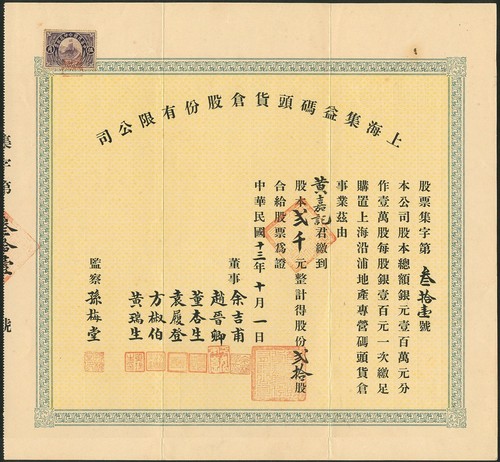 上海集益碼頭貨倉股份有限公司
股票集字第叁拾壹號
本公司股本總額銀元壹百萬元分
作壹萬股每股銀壹百元一次繳足
購置上海沿浦地產專營碼頭貨倉
事業茲由
黃嘉記君繳到
股本貳千元整計得股份貳拾股
合給股票爲證
中華民國十三年十月一日
董事
余吉甫
趙晉卿
董杏生
袁履登
方椒伯
黃瑞生
監察 孫梅堂
集字第叁拾壹號